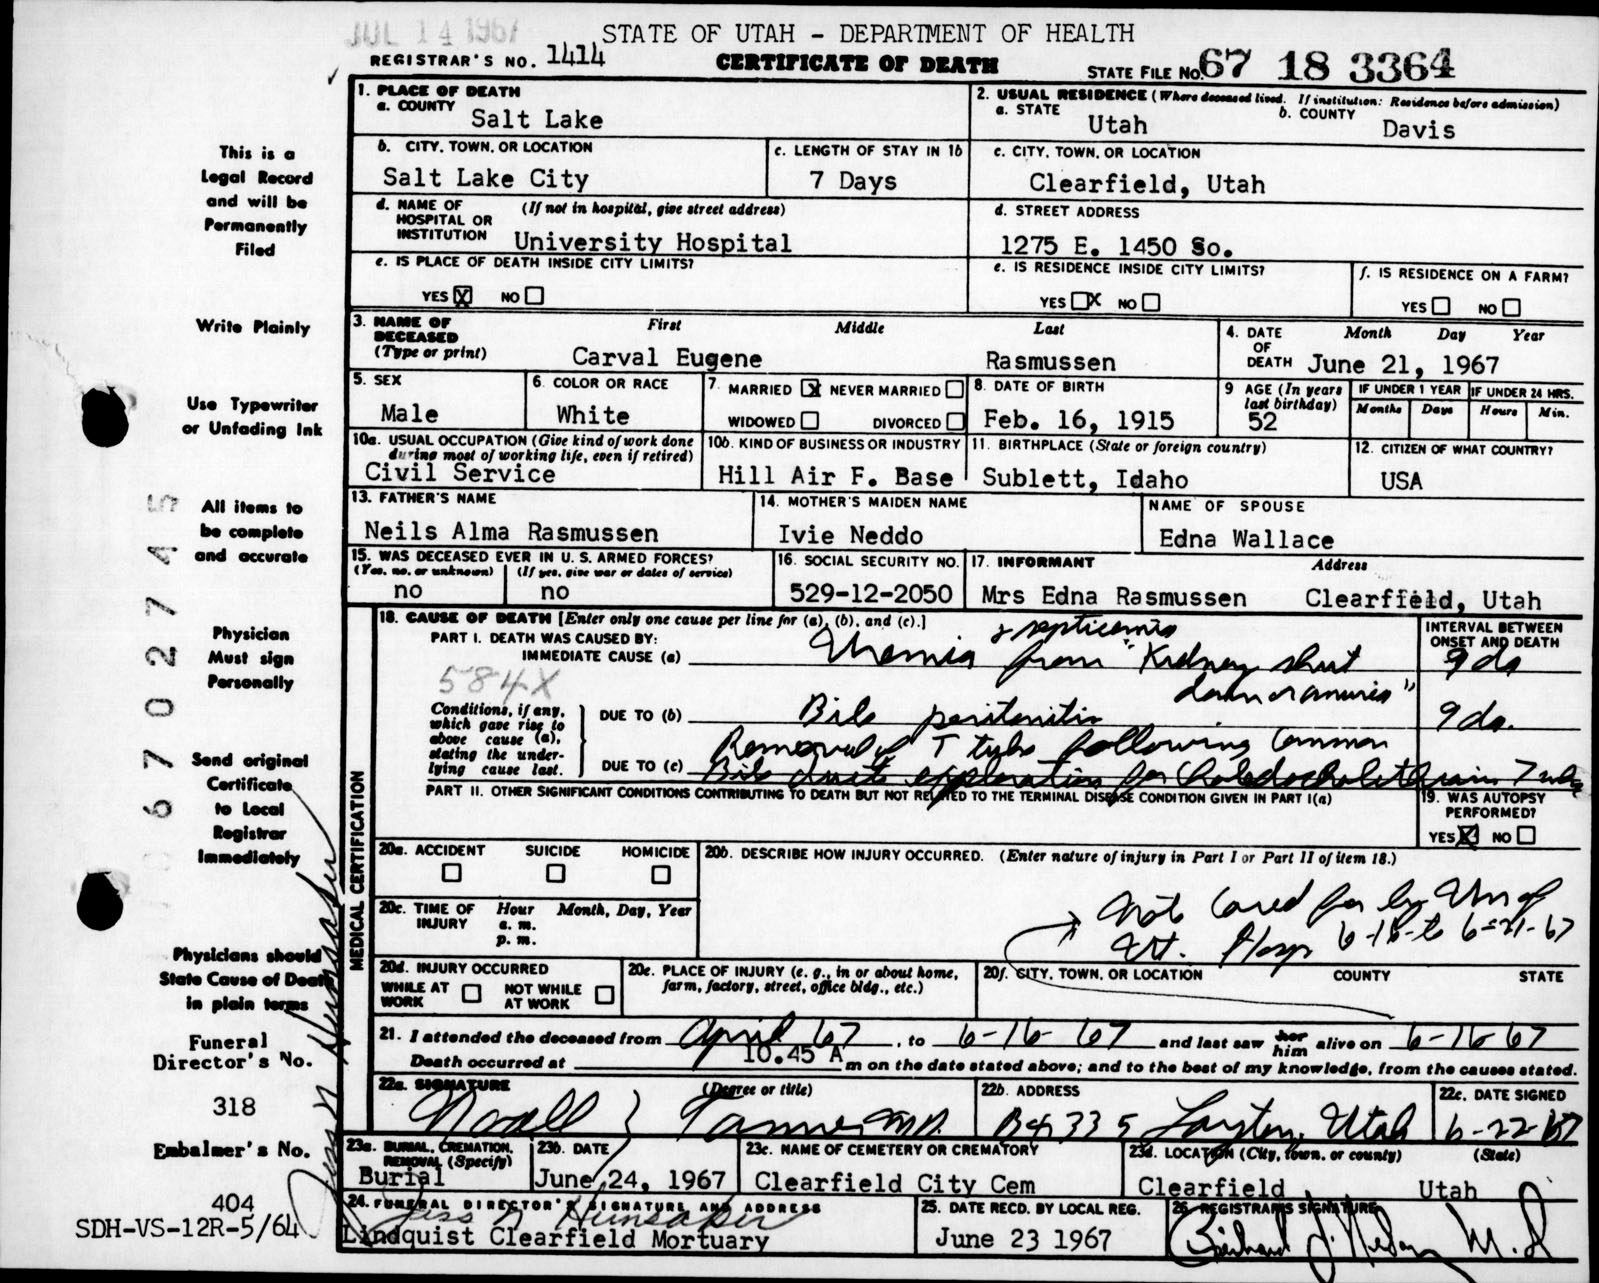 JUL 14 1967
STATE OF UTAH - DEPARTMENT OF HEALTH
REGISTRAR'S NO. 1414
CERTIFICATE OF DEATH
STATE FILE NO. 67 18 3364
This is a
Legal Record
and will be
Permanently
Filed
Write Plainly
Use Typewriter
or Unfading Ink
All items to
be complete
and accurate
Physician
Must sign
Personally
Send original
Certificate
to Local
Registrar
Immediately
Physicians should
State Cause of Death
in plain terms
Funeral
Director's No.
318
Embalmer's No.
404
SDH-VS-12R-5/64
6702745
Hunsaker
1. PLACE OF DEATH
a. COUNTY
Salt Lake
2. USUAL RESIDENCE (Where deceased lived. If institution: Residence before admission)
a. STATE
Utah
b. COUNTY
Davis
b. CITY, TOWN, OR LOCATION
Salt Lake City
c. LENGTH OF STAY IN 1b
7 Days
c. CITY, TOWN, OR LOCATION
Clearfield, Utah
d. NAME OF (If not in hospital, give street address)
HOSPITAL OR
INSTITUTION University Hospital
d. STREET ADDRESS
1275 E. 1450 So.
e. IS PLACE OF DEATH INSIDE CITY LIMITS?
YES X NO
e. IS RESIDENCE INSIDE CITY LIMITS?
YES X NO
f. IS RESIDENCE ON A FARM?
YES NO
3. NAME OF First Middle Last
DECEASED
(Type or print) Carval Eugene Rasmussen
4. DATE Month Day Year
OF
DEATH June 21, 1967
5. SEX
Male
6. COLOR OR RACE
White
7. MARRIED X NEVER MARRIED
WIDOWED DIVORCED
8. DATE OF BIRTH
Feb. 16, 1915
9 AGE (In years
last birthday)
52
IF UNDER 1 YEAR IF UNDER 24 HRS.
Months Days Hours Min.
10a. USUAL OCCUPATION (Give kind of work done
during most of working life, even if retired)
Civil Service
10b. KIND OF BUSINESS OR INDUSTRY
Hill Air F. Base
11. BIRTHPLACE (State or foreign country)
Sublett, Idaho
12. CITIZEN OF WHAT COUNTRY?
USA
13. FATHER'S NAME
Neils Alma Rasmussen
14. MOTHER'S MAIDEN NAME
Ivie Neddo
NAME OF SPOUSE
Edna Wallace
15. WAS DECEASED EVER IN U. S. ARMED FORCES?
(Yes, no, or unknown) (If yes, give war or dates of service)
no no
16. SOCIAL SECURITY NO.
529-12-2050
17. INFORMANT Address
Mrs Edna Rasmussen Clearfield, Utah
MEDICAL CERTIFICATION
18. CAUSE OF DEATH [Enter only one cause per line for (a), (b), and (c).]
PART I. DEATH WAS CAUSED BY: & septicemia
IMMEDIATE CAUSE (a) Uremia from "Kidney shut
down or anuria"
INTERVAL BETWEEN
ONSET AND DEATH
9 da
584X
Conditions, if any,
which gave rise to
above cause (a),
stating the under-
lying cause last.
DUE TO (b) Bile peritonitis 9 da.
Removal of T tube following Common
DUE TO (c) Bile duct exploration for
PART II. OTHER SIGNIFICANT CONDITIONS CONTRIBUTING TO DEATH BUT NOT RELATED TO THE TERMINAL DISEASE CONDITION GIVEN IN PART I(a)
19. WAS AUTOPSY
PERFORMED?
YES X NO
20a. ACCIDENT SUICIDE HOMICIDE
20b. DESCRIBE HOW INJURY OCCURRED. (Enter nature of injury in Part I or Part II of item 18.)
Note Cared for by Un of
Ut. Hosp 6-16-to 6-21-67
20c. TIME OF Hour Month, Day, Year
INJURY a. m.
p. m.
20d. INJURY OCCURRED
WHILE AT NOT WHILE
WORK AT WORK
20e. PLACE OF INJURY (e. g., in or about home,
farm, factory, street, office bldg., etc.)
20f. CITY, TOWN, OR LOCATION COUNTY STATE
21. I attended the deceased from April 67, to 6-16-67 and last saw her him alive on 6-16 67
Death occurred at 10.45 A m on the date stated above; and to the best of my knowledge, from the causes stated.
22a. SIGNATURE (Degree or title)
Noall Z Tanner M.D.
22b. ADDRESS
Box 335 Layton, Utah
22c. DATE SIGNED
6-22-67
23a. BURIAL, CREMATION,
REMOVAL (Specify)
Burial
23b. DATE
June 24, 1967
23c. NAME OF CEMETERY OR CREMATORY
Clearfield City Cem
23d. LOCATION (City, town, or county) (State)
Clearfield Utah
24. FUNERAL DIRECTOR'S SIGNATURE AND ADDRESS
Jess N Hunsaker
Lindquist Clearfield Mortuary
25. DATE RECD. BY LOCAL REG.
June 23 1967
26. REGISTRAR'S SIGNATURE